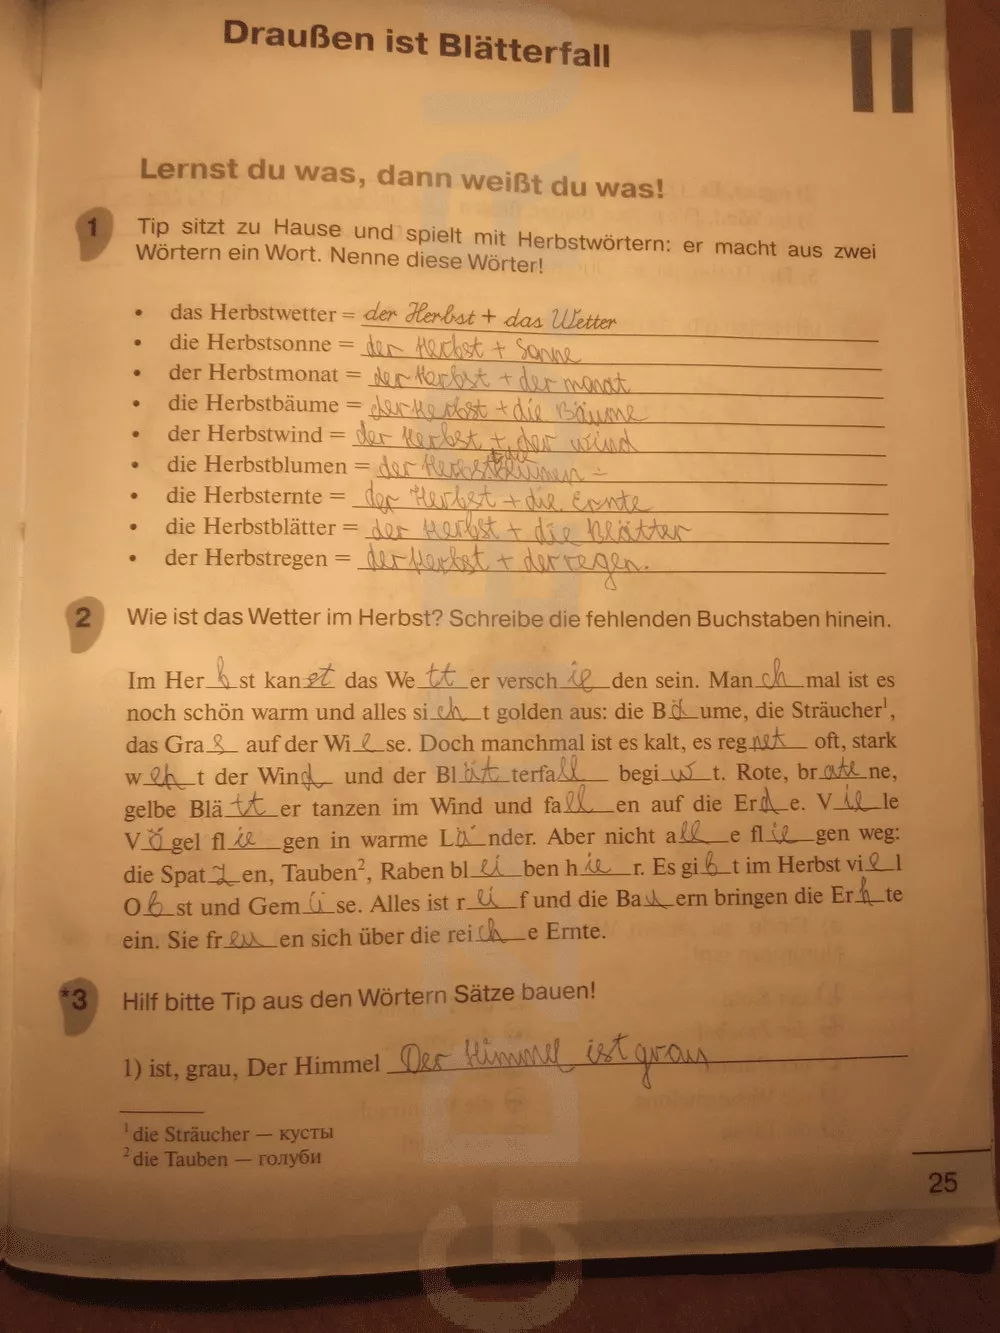 Draußen ist Blätterfall
II
Lernst du was, dann weißt du was!
1 Tip sitzt zu Hause und spielt mit Herbstwörtern: er macht aus zwei
Wörtern ein Wort. Nenne diese Wörter!
• das Herbstwetter = der Herbst + das Wetter
• die Herbstsonne = der Herbst + Sonne
• der Herbstmonat = der Herbst + der monat
• die Herbstbäume = der Herbst + die Bäume
• der Herbstwind = der Herbst + der wind
• die Herbstblumen = der Herbst + die blumen
• die Herbsternte = der Herbst + die Ernte
• die Herbstblätter = der Herbst + die Blätter
• der Herbstregen = der Herbst + der regen.
2 Wie ist das Wetter im Herbst? Schreibe die fehlenden Buchstaben hinein.
Im Her b st kan st das We tt er versch ie den sein. Man ch mal ist es
noch schön warm und alles si eh t golden aus: die B ä ume, die Sträucher¹,
das Gra s auf der Wi e se. Doch manchmal ist es kalt, es reg net oft, stark
w eh t der Win d und der Bl ät terfa ll begi w t. Rote, br ate ne,
gelbe Blä tt er tanzen im Wind und fa ll en auf die Er d e. V ie le
V ö gel fl ie gen in warme L ä nder. Aber nicht a ll e fl ie gen weg:
die Spat z en, Tauben², Raben bl ei ben h ie r. Es gi b t im Herbst vi e l
O b st und Gem ü se. Alles ist r ei f und die Ba u ern bringen die Er n te
ein. Sie fr eu en sich über die rei ch e Ernte.
*3 Hilf bitte Tip aus den Wörtern Sätze bauen!
1) ist, grau, Der Himmel Der Himmel ist grau
¹ die Sträucher — кусты
² die Tauben — голуби
25